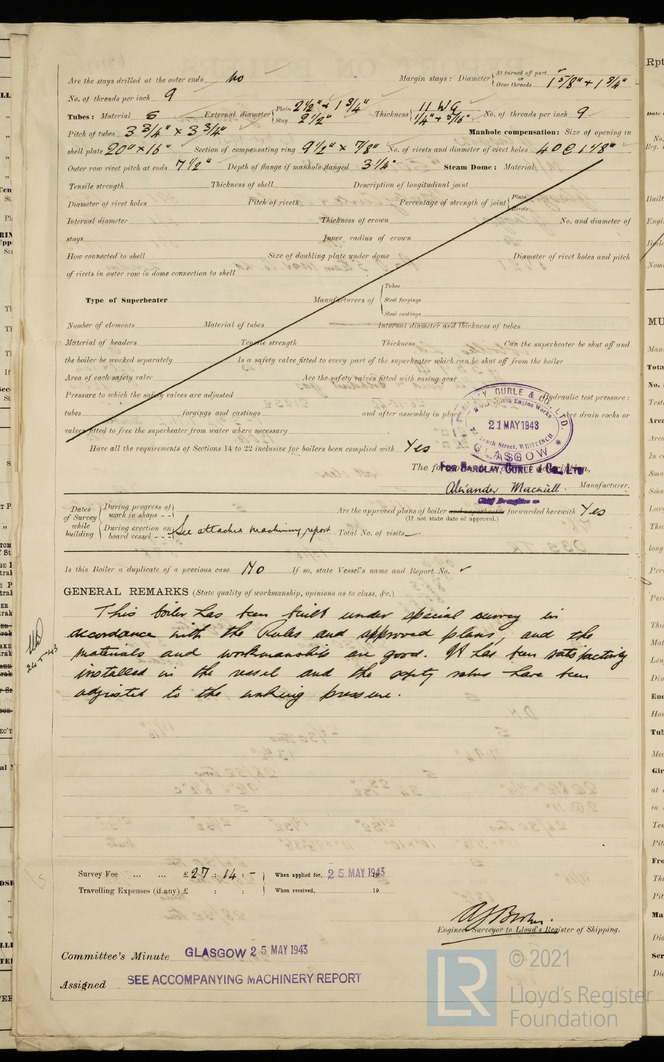 Are the stays drilled at the outer ends No Margin stays: Diameter { At turned off part, or Over threads 1 5/8" + 1 3/4"
No. of threads per inch 9
Tubes: Material S External diameter { Plain 2 1/2" + 1 3/4" Stay 2 1/2" Thickness { 11 WG 1/4" + 5/16" No. of threads per inch 9
Pitch of tubes 3 3/4" × 3 3/4" Manhole compensation: Size of opening in
shell plate 20" × 16" Section of compensating ring 9 1/2" × 7/8" No. of rivets and diameter of rivet holes 40 @ 1 1/8"
Outer row rivet pitch at ends 7 1/2" Depth of flange if manhole flanged 3 1/4" Steam Dome: Material
Tensile strength Thickness of shell Description of longitudinal joint
Diameter of rivet holes Pitch of rivets Percentage of strength of joint { Plate Rivets
Internal diameter Thickness of crown No. and diameter of
stays Inner radius of crown
How connected to shell Size of doubling plate under dome Diameter of rivet holes and pitch
of rivets in outer row in dome connection to shell
Type of Superheater Manufacturers of { Tubes Steel forgings Steel castings
Number of elements Material of tubes Internal diameter and thickness of tubes
Material of headers Tensile strength Thickness Can the superheater be shut off and
the boiler be worked separately Is a safety valve fitted to every part of the superheater which can be shut off from the boiler
Area of each safety valve Are the safety valves fitted with easing gear
Pressure to which the safety valves are adjusted Hydraulic test pressure:
tubes forgings and castings and after assembly in place drain cocks or
valves fitted to free the superheater from water where necessary
Have all the requirements of Sections 14 to 22 inclusive for boilers been complied with Yes
BARCLAY, CURLE & CO. LTD.
21 MAY 1943
South Street, WHITEINCH
GLASGOW
FOR BARCLAY, CURLE & CO., LTD
Alexander Mackill Manufacturer.
Dates of Survey while building { During progress of work in shops - - During erection on board vessel - - - See attached machinery report Total No. of visits
Are the approved plans of boiler and superheater forwarded herewith Yes
(If not state date of approval.)
Is this Boiler a duplicate of a previous case No If so, state Vessel's name and Report No.
GENERAL REMARKS (State quality of workmanship, opinions as to class, &c.)
This boiler has been built under special survey in
accordance with the Rules and approved plans, and the
materials and workmanship are good. It has been satisfactorily
installed in the vessel and the safety valves have been
adjusted to the working pressure.
24-5-43
Survey Fee ... ... £27 : 14 : - When applied for, 25 MAY 1943
Travelling Expenses (if any) £ : : When received, 19
Engineer Surveyor to Lloyd's Register of Shipping.
Committee's Minute GLASGOW 25 MAY 1943
Assigned SEE ACCOMPANYING MACHINERY REPORT
LR © 2021
Lloyd's Register
Foundation